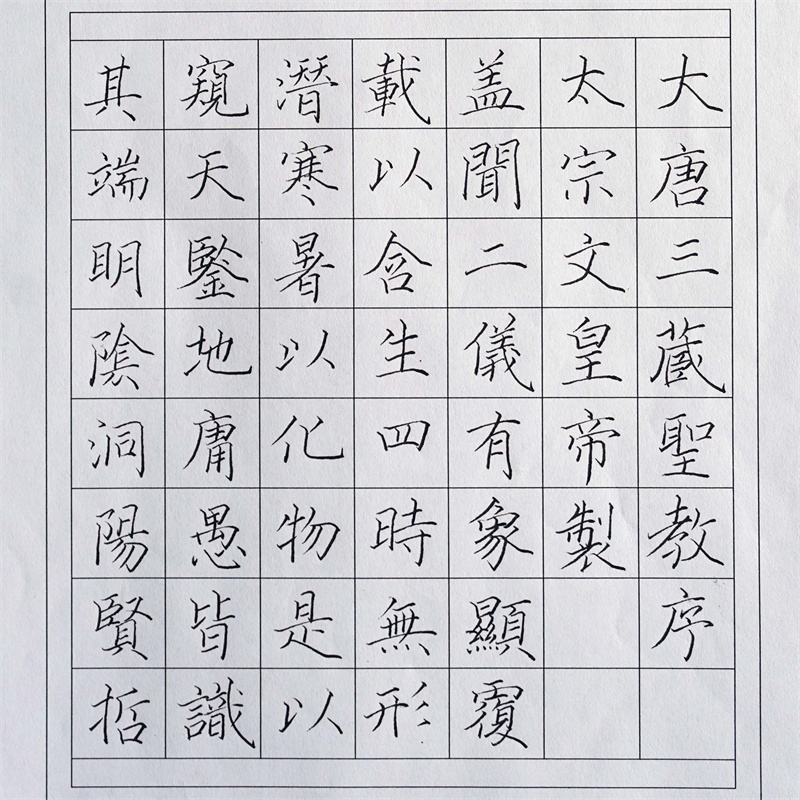 大唐三蔵聖教序
太宗文皇帝製
盖聞二儀有象顯覆
載以含生四時無形
潛寒暑以化物是以
窺天鑒地庸愚皆識
其端明陰洞陽賢哲